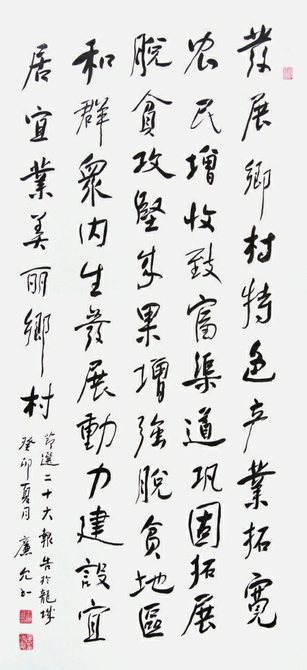 發展鄉村特色产業拓寬
农民增收致富渠道巩固拓展
脫貧攻堅成果增強脫貧地區
和群衆内生發展動力建設宜
居宜業美丽鄉村
節選二十大報告於龍城
癸卯夏月廉允